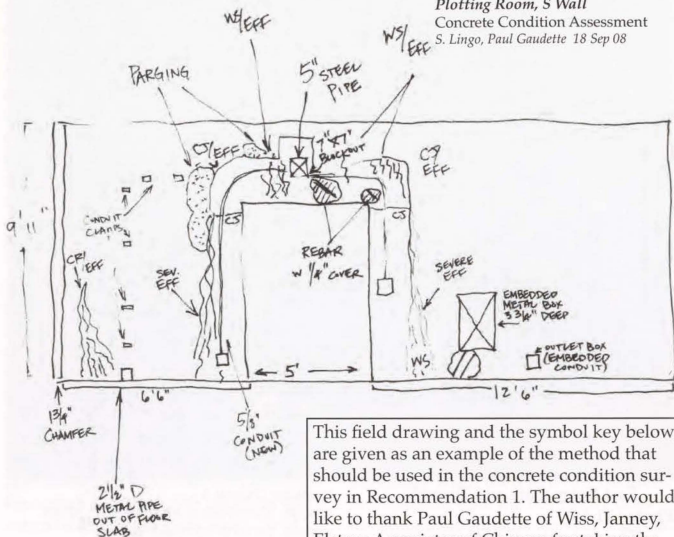 Plotting Room, S Wall
Concrete Condition Assessment
S. Lingo, Paul Gaudette 18 Sep 08
WS/EFF
PARGING
5" STEEL
PIPE
WS/
EFF
7"x7"
BLOCKOUT
CJ/EFF
CJ/
EFF
9'11"
CONDUIT
CLAMPS
CJ
CJ
CR/
EFF
SEV.
EFF
REBAR
W 1/4" COVER
SEVERE
EFF
EMBEDDED
METAL BOX
3 3/4" DEEP
OUTLET BOX
(EMBEDDED
CONDUIT)
WS
6'6"
5'
12'6"
1 3/4"
CHAMFER
5/8"
CONDUIT
(NEW)
2 1/2" D
METAL PIPE
OUT OF FLOOR
SLAB
This field drawing and the symbol key below
are given as an example of the method that
should be used in the concrete condition sur-
vey in Recommendation 1. The author would
like to thank Paul Gaudette of Wiss, Janney,